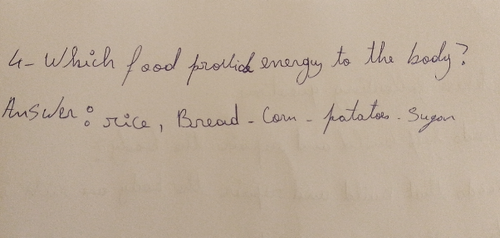 4- Which food provid energy to the body?
Answer: rice, Bread - Corn - patatoes - Sugar